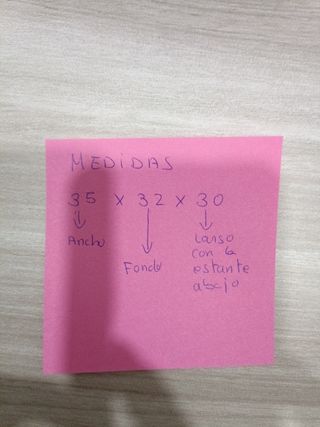 MEDIDAS
35 x 32 x 30
Ancho
Fondo
Largo
con la
estante
abajo